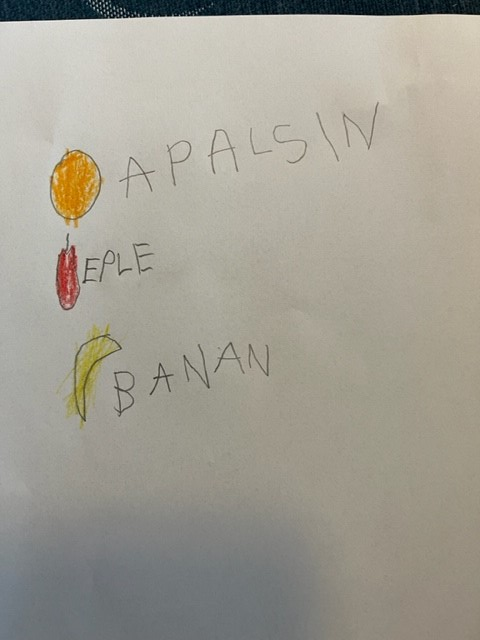 APALSIN
EPLE
BANAN